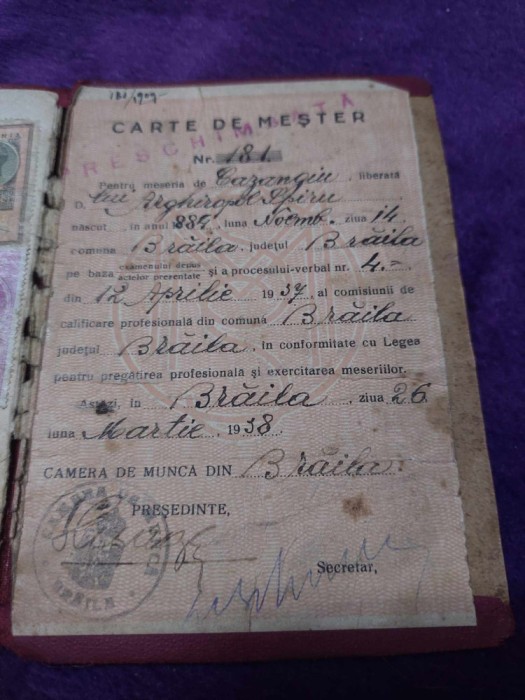 181/909
CARTE DE MEȘTER
PRESCHIMBATĂ
Nr. 181
Pentru meseria de Cazangiu, liberată
D. lui Arghiropol Spiru
născut în anul 884, luna Noemb. ziua 14
comuna Brăila, județul Brăila
pe baza examenului depus
actelor prezentate și a procesului-verbal nr. 4.-
din 12 Aprilie 1937, al comisiunii de
calificare profesională din comuna Brăila
județul Brăila, în conformitate cu Legea
pentru pregătirea profesională și exercitarea meseriilor.
Astăzi, în Brăila ziua 26
luna Martie 1938.
CAMERA DE MUNCĂ DIN Brăila.
PREȘEDINTE,
Secretar,
CAMERA DE MUNCA
BRĂILA